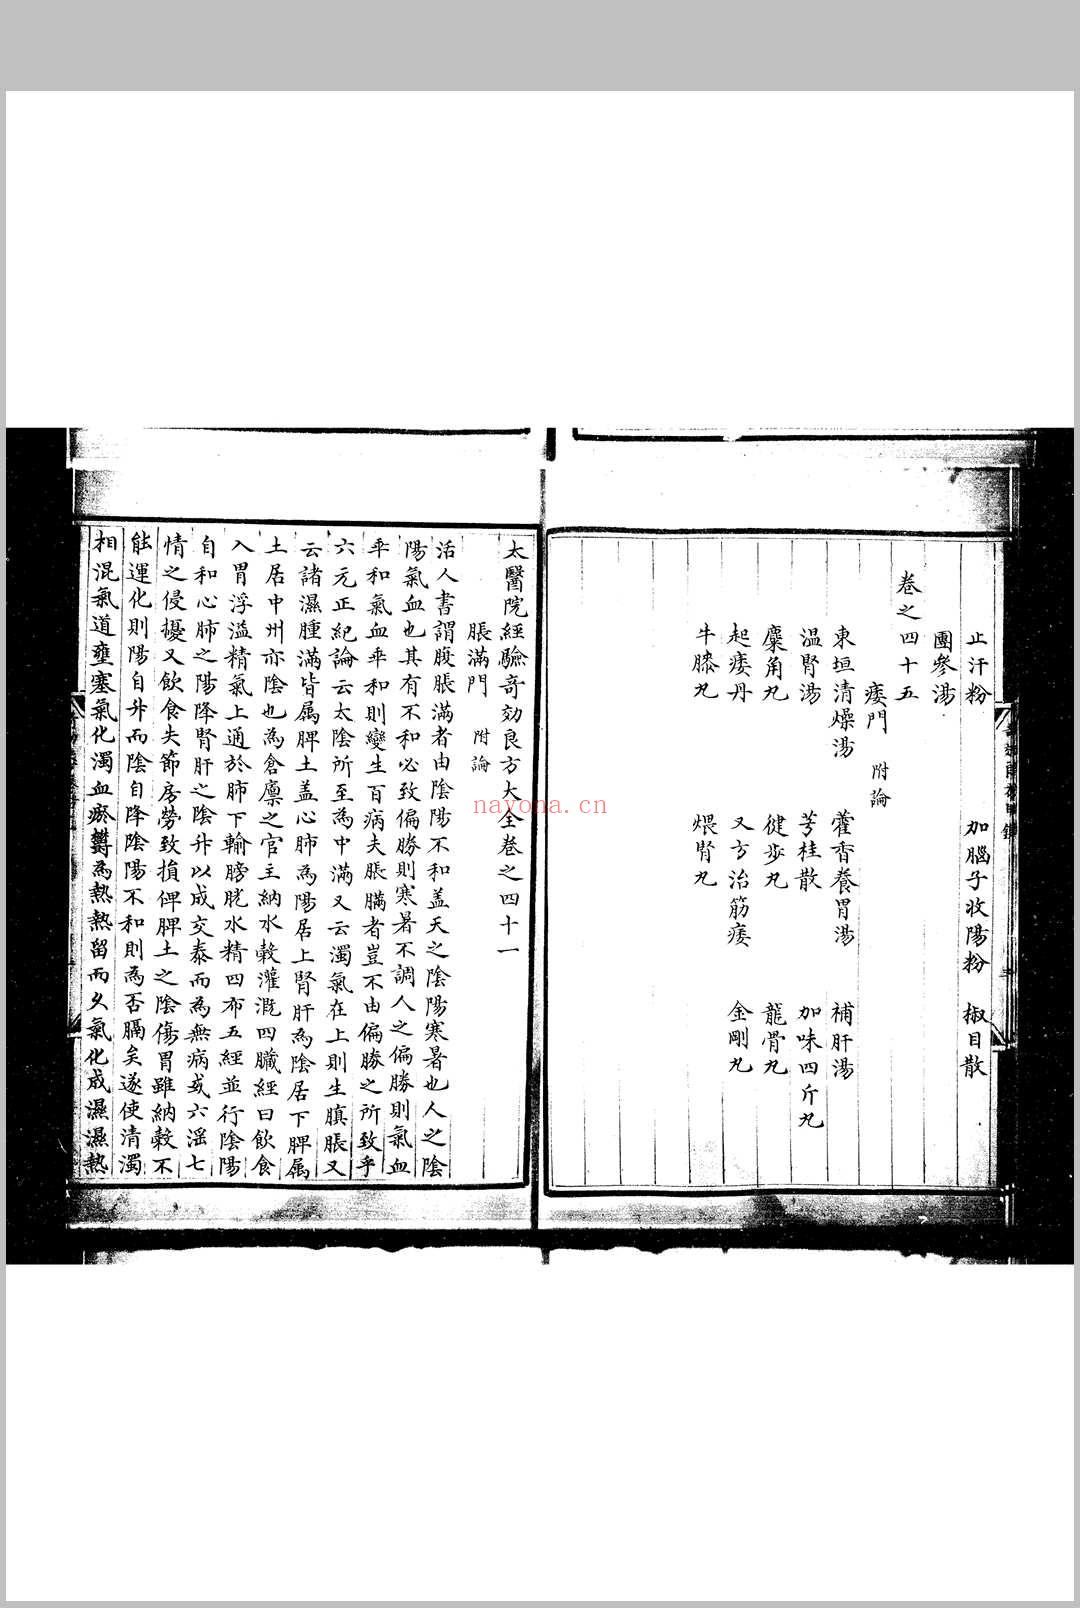 止汗粉 加腦子收陽粉 椒目散
團參湯
卷之四十五
痿門 附論
東垣清燥湯 藿香養胃湯 補肝湯
溫腎湯 芎桂散 加味四斤丸
麋角丸 健步丸 龍骨丸
起痿丹 又方治筋痿 金剛丸
牛膝丸 煨腎丸
太醫院經驗奇効良方大全卷之四十一
脹滿門 附論
活人書謂腹脹滿者由陰陽不和盖天之陰陽寒暑也人之陰
陽氣血也其有不和必致偏勝則寒暑不調人之偏勝則氣血
乖和氣血乖和則變生百病夫脹滿者豈不由偏勝之所致乎
六元正紀論云太陰所至為中滿又云濁氣在上則生䐜脹又
云諸濕腫滿皆属脾土盖心肺為陽居上腎肝為陰居下脾属
土居中州亦陰也為倉廪之官主納水穀灌溉四臟經曰飲食
入胃浮溢精氣上通於肺下輸膀胱水精四布五經並行陰陽
自和心肺之陽降腎肝之陰升以成交泰而為無病或六淫七
情之侵擾又飲食失節房勞致損俾脾土之陰傷胃雖納穀不
能運化則陽自升而陰自降陰陽不和則為否膈矣遂使清濁
相混氣道壅塞氣化濁血瘀鬱為熱熱留而久氣化成濕濕熱
nayona.cn